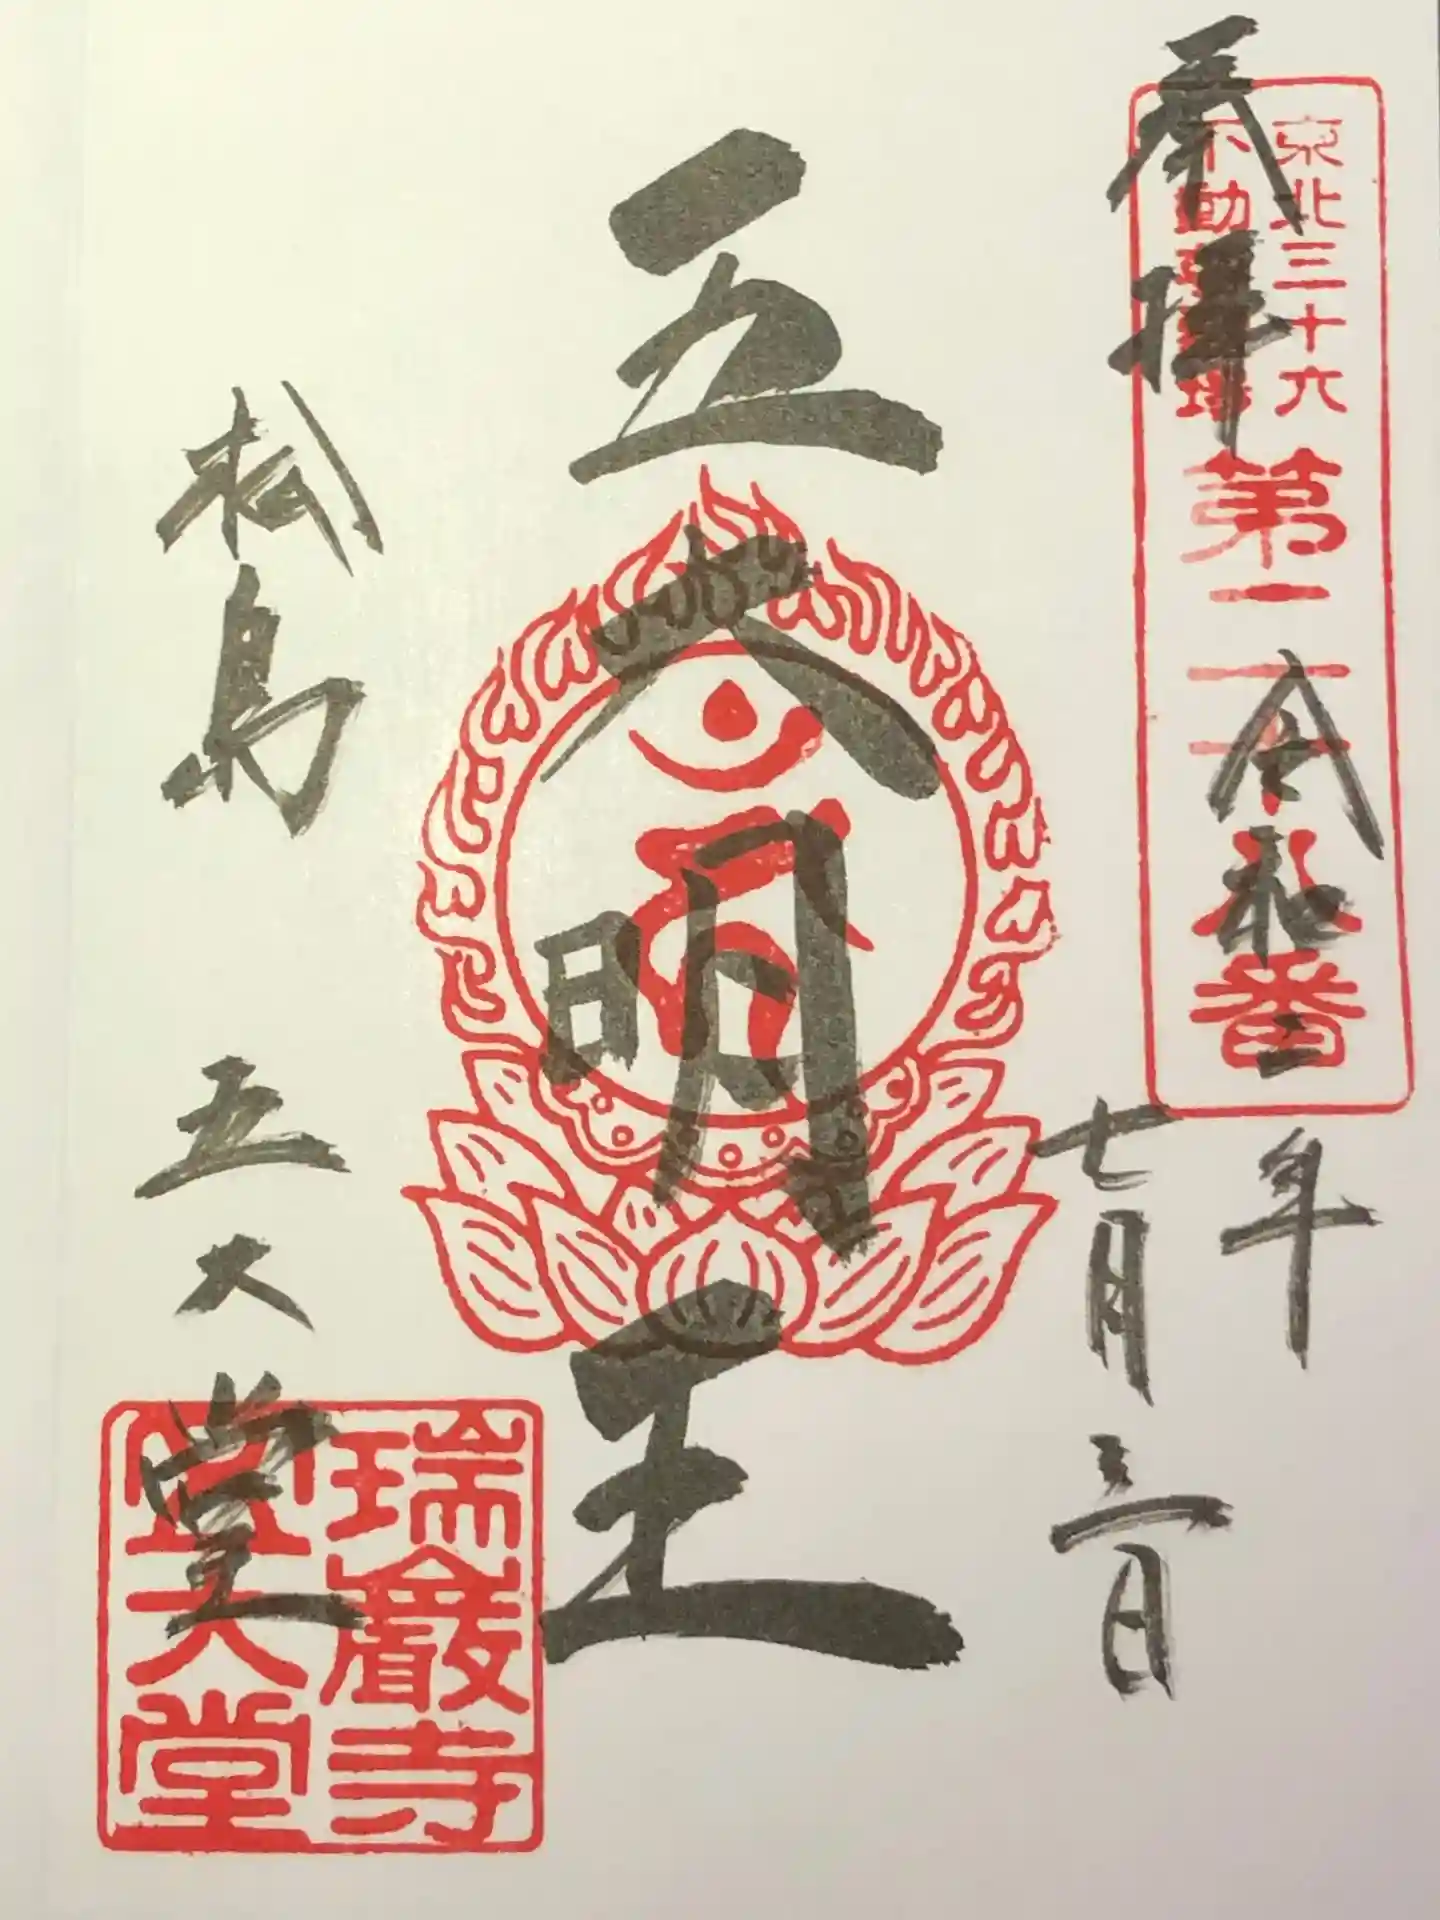 奉拝
東北三十六
不動尊霊場
第二十
番
令和二年
七月三日
五大明王
松島 五大堂
瑞巌寺
五大堂